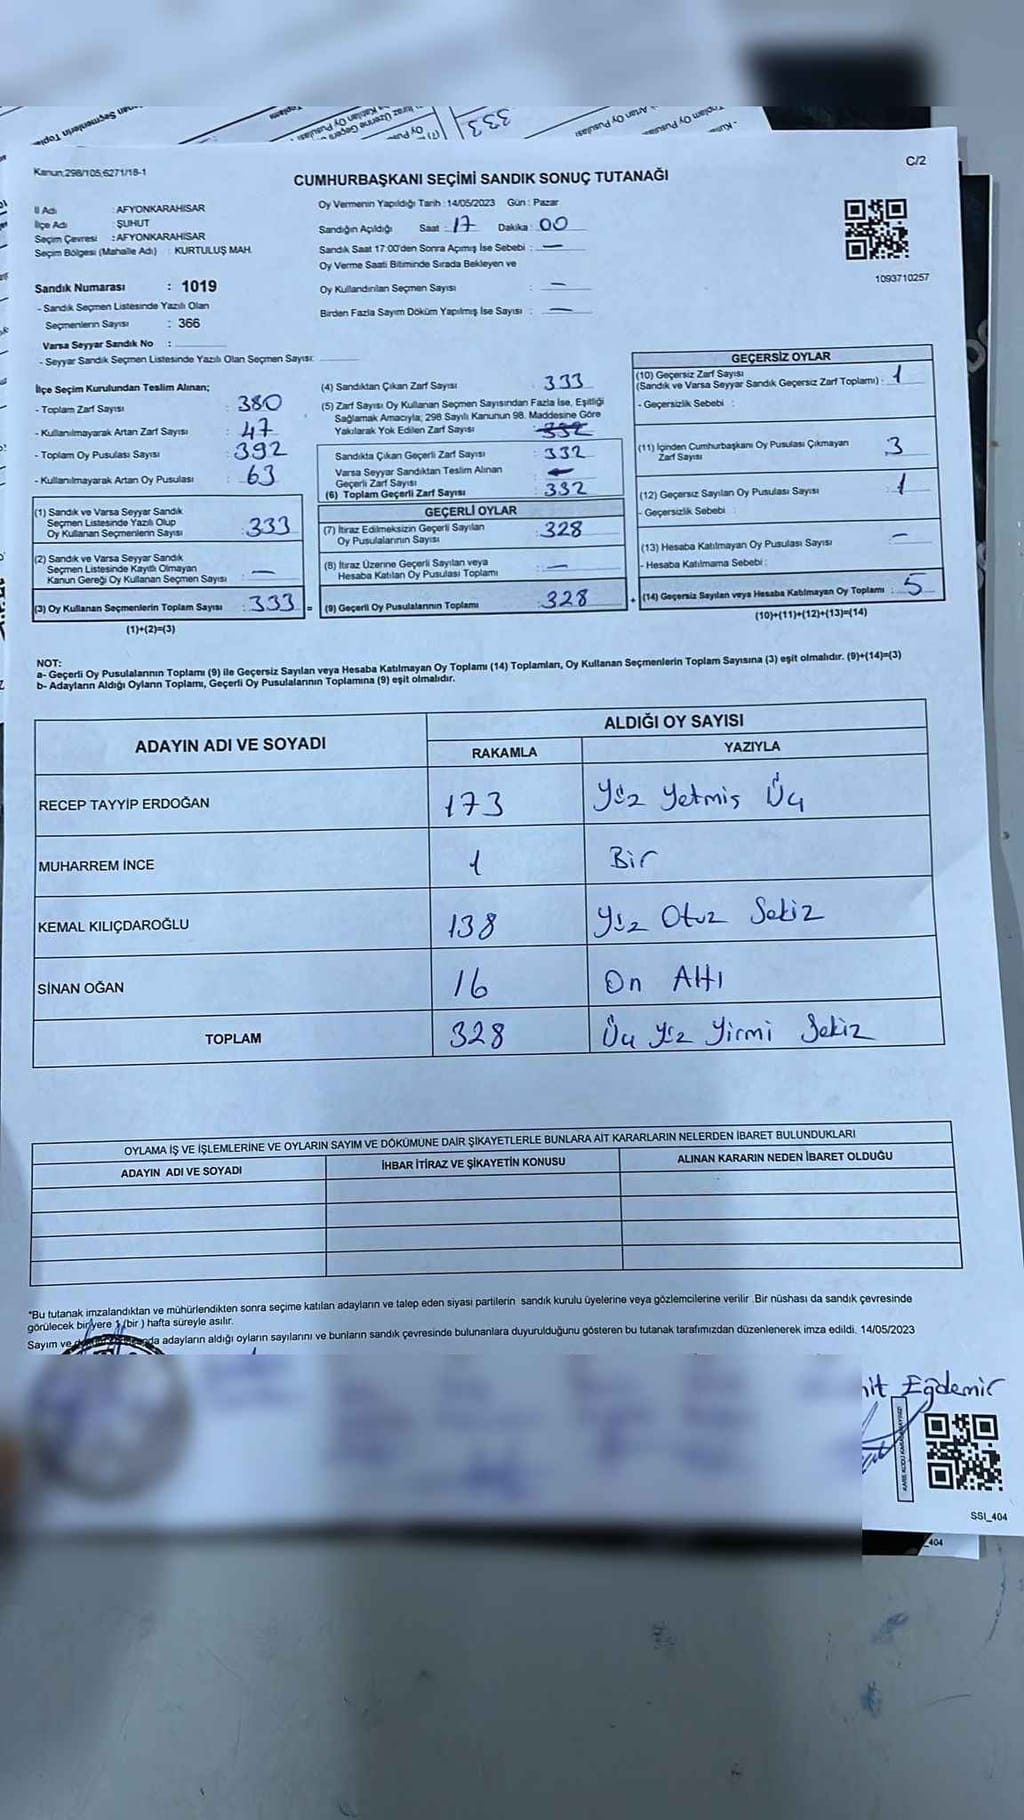 333
Kanun;298/105;6271/18-1
C/2
CUMHURBAŞKANI SEÇİMİ SANDIK SONUÇ TUTANAĞI
İl Adı : AFYONKARAHİSAR
İlçe Adı : ŞUHUT
Seçim Çevresi : AFYONKARAHİSAR
Seçim Bölgesi (Mahalle Adı) : KURTULUŞ MAH.
Oy Vermenin Yapıldığı Tarih : 14/05/2023 Gün : Pazar
Sandığın Açıldığı Saat : 17 Dakika : 00
Sandık Saat 17.00'den Sonra Açımış İse Sebebi : —
Oy Verme Saati Bitiminde Sırada Bekleyen ve
Oy Kullandırılan Seçmen Sayısı : —
Birden Fazla Sayım Döküm Yapılmış İse Sayısı : —
1093710257
Sandık Numarası : 1019
- Sandık Seçmen Listesinde Yazılı Olan
Seçmenlerin Sayısı : 366
Varsa Seyyar Sandık No :
- Seyyar Sandık Seçmen Listesinde Yazılı Olan Seçmen Sayısı:
İlçe Seçim Kurulundan Teslim Alınan;
- Toplam Zarf Sayısı : 380
- Kullanılmayarak Artan Zarf Sayısı : 47
- Toplam Oy Pusulası Sayısı : 392
- Kullanılmayarak Artan Oy Pusulası : 63
(1) Sandık ve Varsa Seyyar Sandık
Seçmen Listesinde Yazılı Olup
Oy Kullanan Seçmenlerin Sayısı : 333
(2) Sandık ve Varsa Seyyar Sandık
Seçmen Listesinde Kayıtlı Olmayan
Kanun Gereği Oy Kullanan Seçmen Sayısı : —
(3) Oy Kullanan Seçmenlerin Toplam Sayısı : 333 =
(1)+(2)=(3)
(4) Sandıktan Çıkan Zarf Sayısı : 333
(5) Zarf Sayısı Oy Kullanan Seçmen Sayısından Fazla İse, Eşitliği
Sağlamak Amacıyla; 298 Sayılı Kanunun 98. Maddesine Göre
Yakılarak Yok Edilen Zarf Sayısı : 332
Sandıkta Çıkan Geçerli Zarf Sayısı : 332
Varsa Seyyar Sandıktan Teslim Alınan
Geçerli Zarf Sayısı : —
(6) Toplam Geçerli Zarf Sayısı : 332
GEÇERLİ OYLAR
(7) İtiraz Edilmeksizin Geçerli Sayılan
Oy Pusulalarının Sayısı : 328
(8) İtiraz Üzerine Geçerli Sayılan veya
Hesaba Katılan Oy Pusulası Toplamı : —
(9) Geçerli Oy Pusulalarının Toplamı : 328 +
GEÇERSİZ OYLAR
(10) Geçersiz Zarf Sayısı
(Sandık ve Varsa Seyyar Sandık Geçersiz Zarf Toplamı) : 1
- Geçersizlik Sebebi :
(11) İçinden Cumhurbaşkanı Oy Pusulası Çıkmayan
Zarf Sayısı : 3
(12) Geçersiz Sayılan Oy Pusulası Sayısı : 1
- Geçersizlik Sebebi :
(13) Hesaba Katılmayan Oy Pusulası Sayısı : —
- Hesaba Katılmama Sebebi :
(14) Geçersiz Sayılan veya Hesaba Katılmayan Oy Toplamı : 5
(10)+(11)+(12)+(13)=(14)
NOT:
a- Geçerli Oy Pusulalarının Toplamı (9) ile Geçersiz Sayılan veya Hesaba Katılmayan Oy Toplamı (14) Toplamları, Oy Kullanan Seçmenlerin Toplam Sayısına (3) eşit olmalıdır. (9)+(14)=(3)
b- Adayların Aldığı Oyların Toplamı, Geçerli Oy Pusulalarının Toplamına (9) eşit olmalıdır.
ADAYIN ADI VE SOYADI
ALDIĞI OY SAYISI
RAKAMLA YAZIYLA
RECEP TAYYİP ERDOĞAN 173 Yüz Yetmiş Üç
MUHARREM İNCE 1 Bir
KEMAL KILIÇDAROĞLU 138 Yüz Otuz Sekiz
SİNAN OĞAN 16 On Altı
TOPLAM 328 Üç Yüz Yirmi Sekiz
OYLAMA İŞ VE İŞLEMLERİNE VE OYLARIN SAYIM VE DÖKÜMÜNE DAİR ŞİKAYETLERLE BUNLARA AİT KARARLARIN NELERDEN İBARET BULUNDUKLARI
ADAYIN ADI VE SOYADI İHBAR İTİRAZ VE ŞİKAYETİN KONUSU ALINAN KARARIN NEDEN İBARET OLDUĞU
*Bu tutanak imzalandıktan ve mühürlendikten sonra seçime katılan adayların ve talep eden siyasi partilerin sandık kurulu üyelerine veya gözlemcilerine verilir .Bir nüshası da sandık çevresinde
görülecek bir yere 1 (bir ) hafta süreyle asılır.
Sayım ve adayların aldığı oyların sayılarını ve bunların sandık çevresinde bulunanlara duyurulduğunu gösteren bu tutanak tarafımızdan düzenlenerek imza edildi. 14/05/2023
Eğdemir
SSI_404
_404